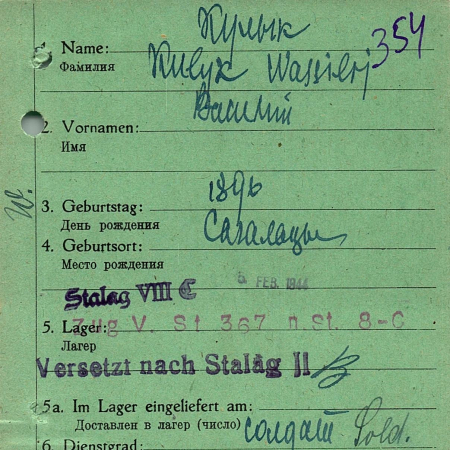 Кулык
354
1. Name: Kulyk Wassilij
Фамилия
Василий
2. Vornamen:
Имя
W.
1896
3. Geburtstag:
День рождения
4. Geburtsort:
Место рождения
Stalag VIII C
5 FEB. 1944
5. Lager: Zug V. St 367 n St. 8-C
Лагер
Versetzt nach Stalag II B
5a. Im Lager eingeliefert am:
Доставлен в лагер (число)
солдат Sold.
6. Dienstgrad: